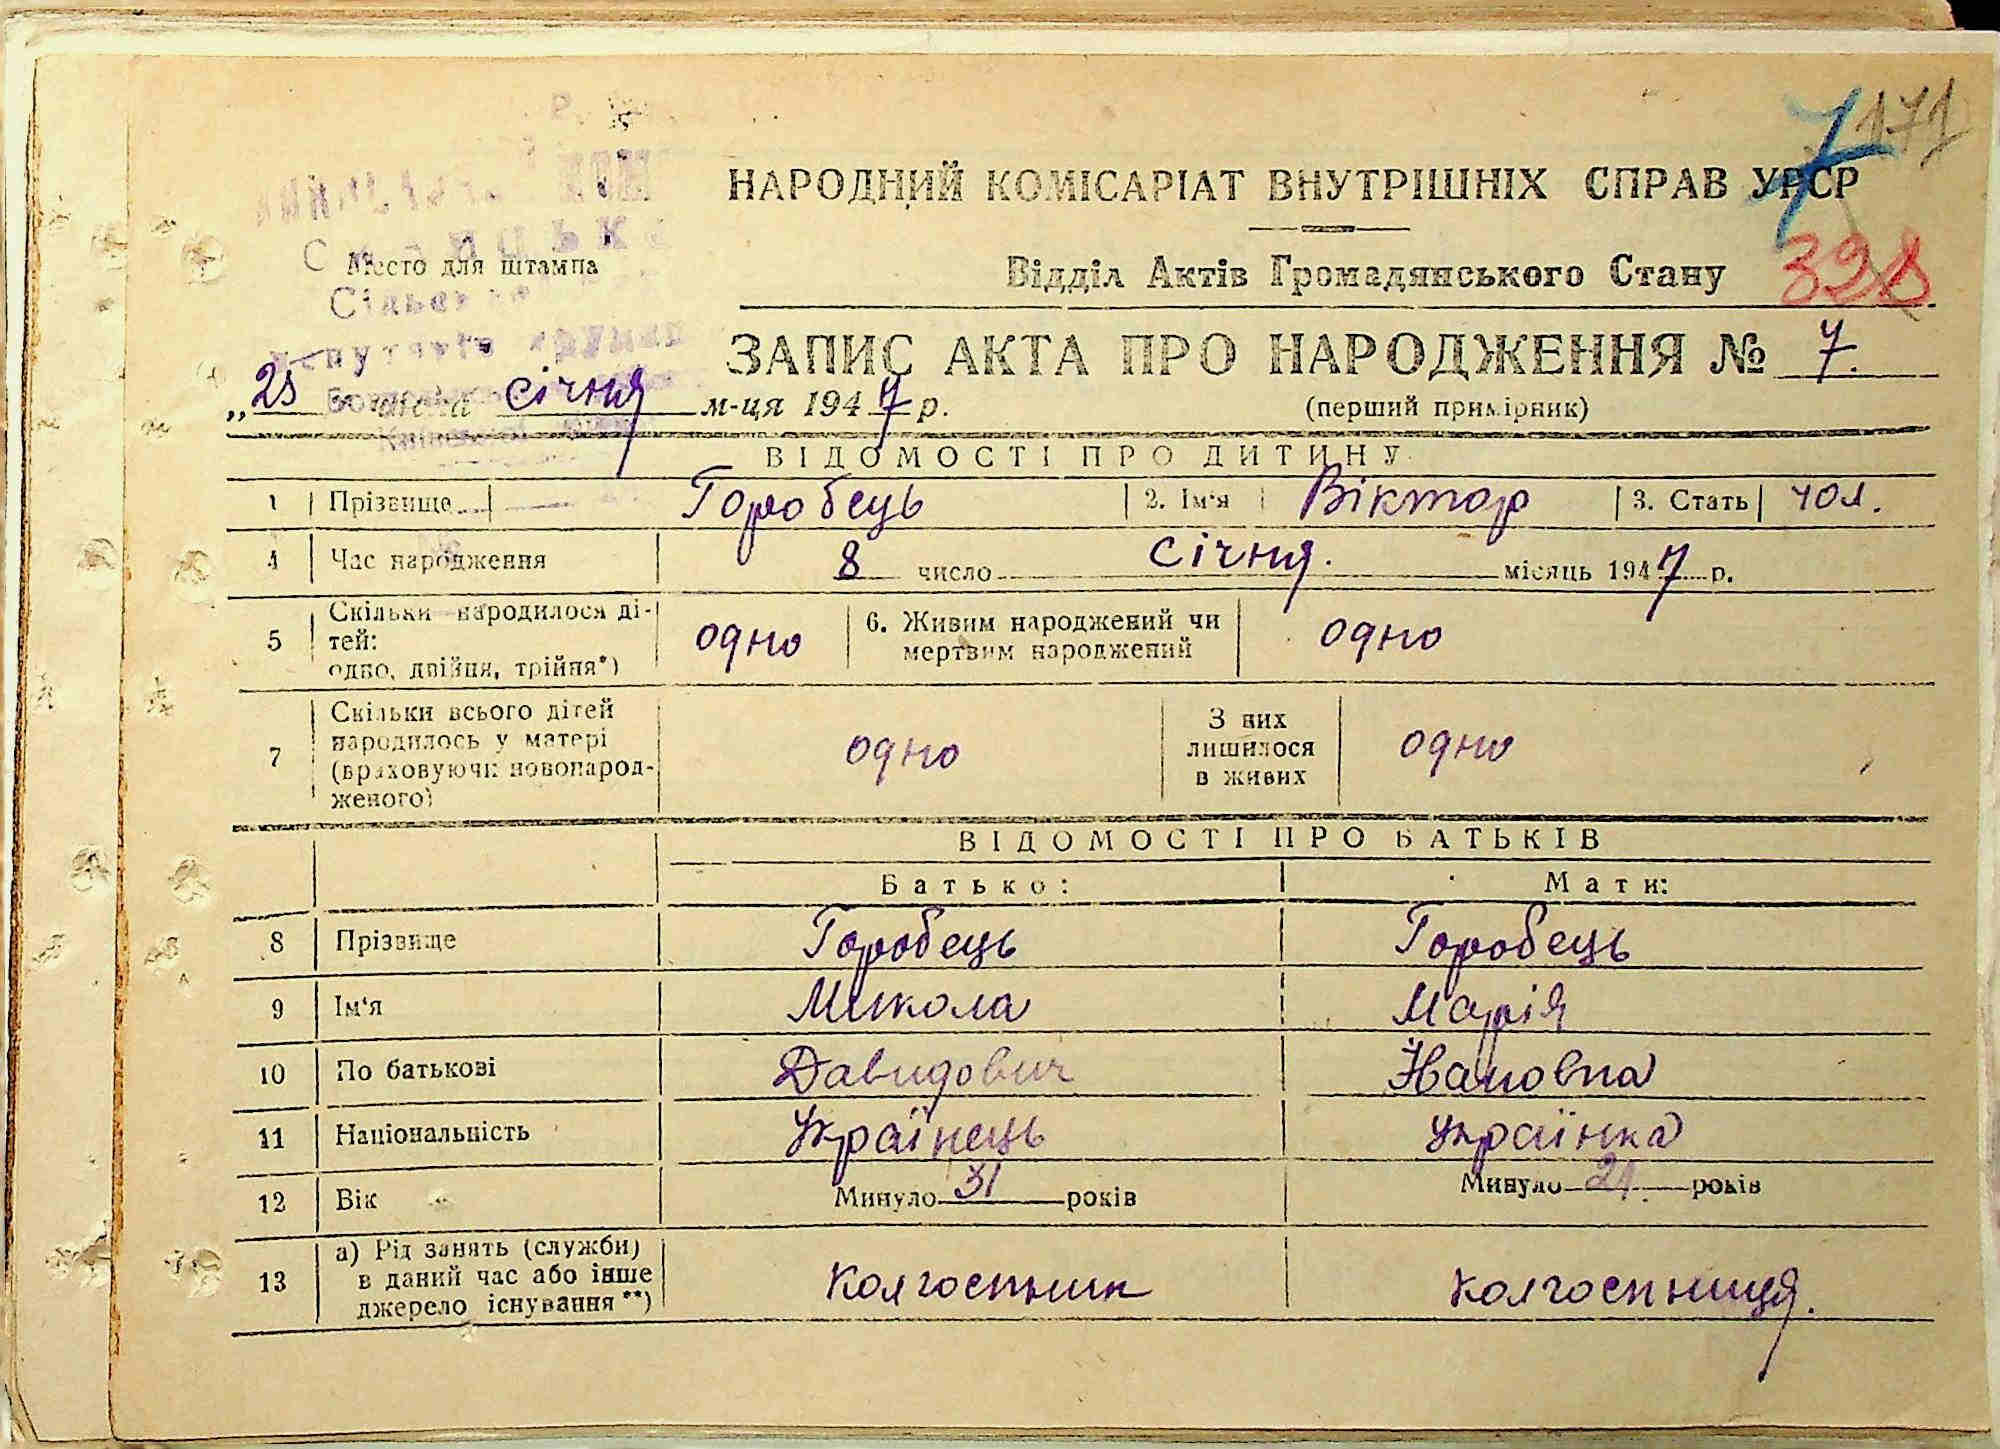 7 171
НАРОДНИЙ КОМІСАРІАТ ВНУТРІШНІХ СПРАВ УРСР
Место для штампа
Відділ Актів Громадянського Стану
328
ЗАПИС АКТА ПРО НАРОДЖЕННЯ № 7.
„25 числа січня м-ця 1947 р.
(перший примірник)
ВІДОМОСТІ ПРО ДИТИНУ
1 Прізвище Горобець 2. Ім'я Віктор 3. Стать чол.
4 Час народження 8 число січня. місяць 1947 р.
5 Скільки народилося ді-
тей:
одно, двійня, трійня*) одно
6. Живим народжений чи
мертвим народжений одно
7 Скільки всього дітей
народилось у матері
(враховуючи новонарод-
женого) одно
З них
лишилося
в живих одно
ВІДОМОСТІ ПРО БАТЬКІВ
Батько: Мати:
8 Прізвище Горобець Горобець
9 Ім'я Микола Марія
10 По батькові Давидович
11 Національність Українець Українка
12 Вік Минуло 31 років Минуло 21. років
13 а) Рід занять (служби)
в даний час або інше
джерело існування**) колгоспник колгоспниця.